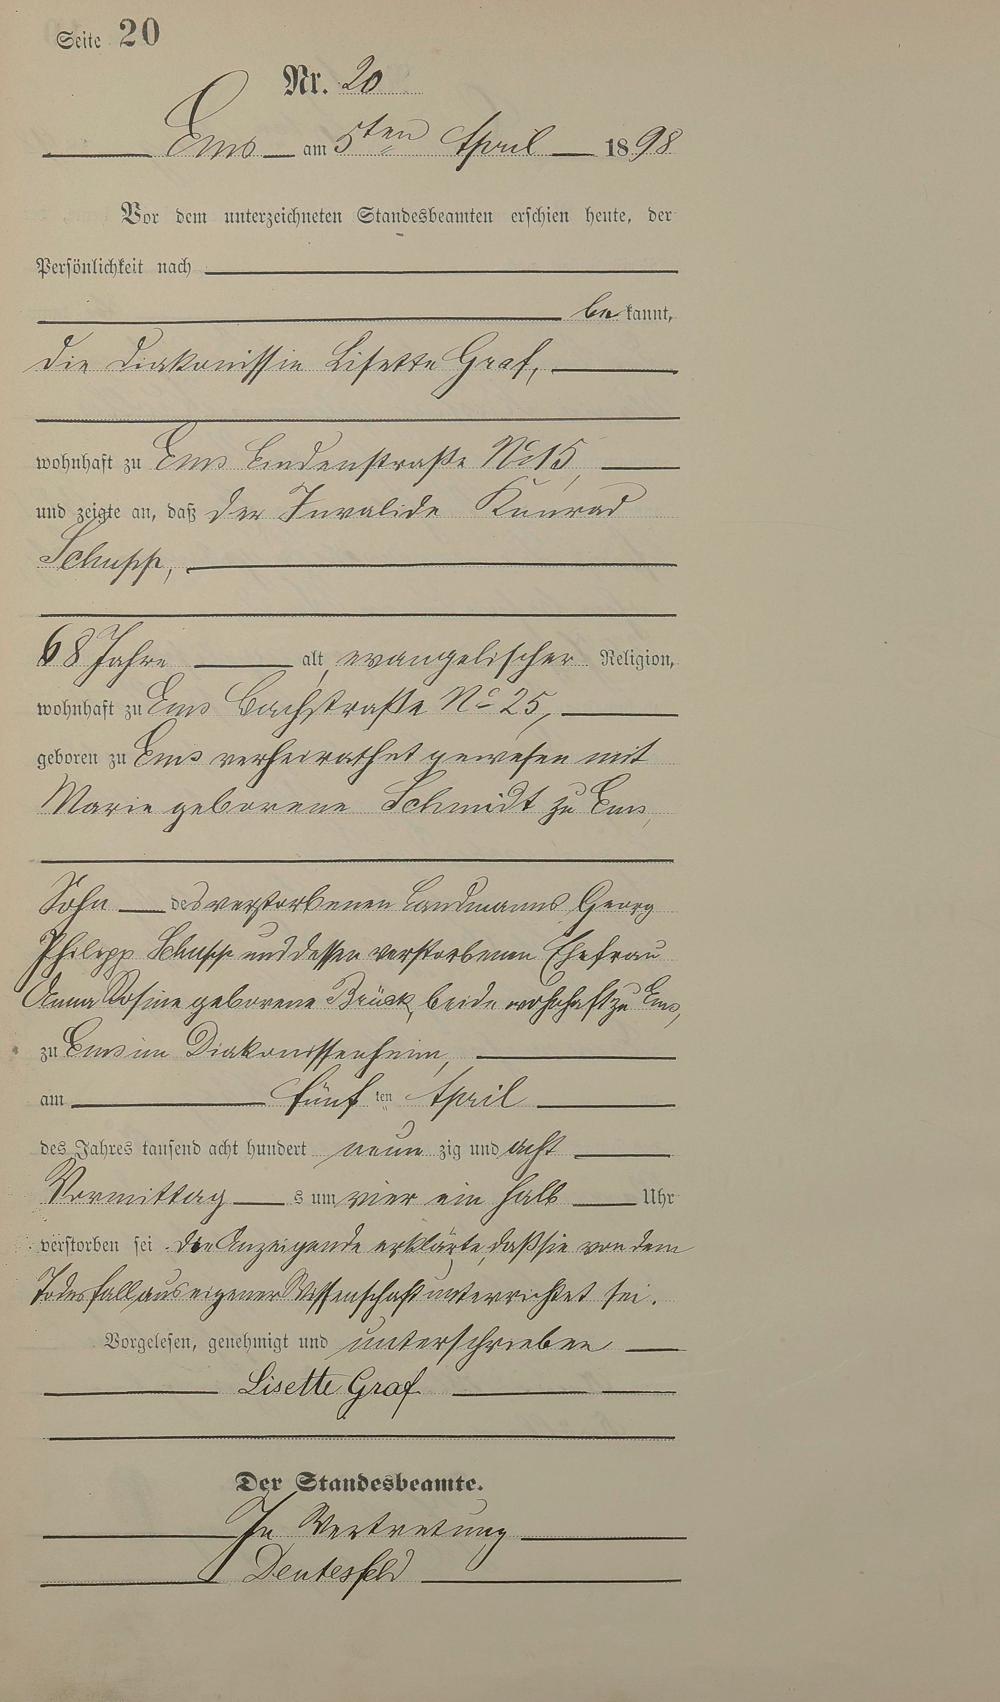 Seite 20
Nr. 20
Ems am 5ten April 1898
Vor dem unterzeichneten Standesbeamten erschien heute, der
Persönlichkeit nach
bekannt,
die Diakonissin Lisette Graf,
wohnhaft zu Ems Lindenstraße No 15,
und zeigte an, daß der Invalide Konrad
Schupp,
68 Jahre alt, evangelischer Religion,
wohnhaft zu Ems Bachstraße No 25,
geboren zu Ems verheirathet gewesen mit
Marie geborene Schmidt zu Ems,
Sohn des verstorbenen Landmanns Georg
Philipp Schupp und dessen verstorbenen Ehefrau
Anna Rosine geborene Brück, beide wohnhaft zu Ems,
zu Ems im Diakonissenheim,
am fünften April
des Jahres tausend acht hundert neunzig und acht
Vormittags um vier ein halb Uhr
verstorben sei. Die Anzeigende erklärte, daß sie von dem
Todesfall aus eigener Wissenschaft unterrichtet sei.
Vorgelesen, genehmigt und unterschrieben
Lisette Graf
Der Standesbeamte.
In Vertretung
Deutesfeld